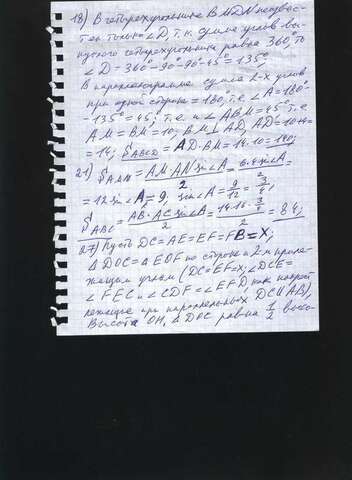 18) В четырехугольнике BMDN неизвес-
тен только ∠D, т.к. сумма углов вы-
пуклого четырехугольника равна 360°, то
∠D = 360° - 90° - 90° - 45° = 135°,
В параллелограмме сумма 2-х углов
при одной стороне = 180°, т.е. ∠A = 180° -
- 135° = 45°; т.е. и ∠ABM = 45°, т.е.
AM = BM = 10; BM ⊥ AD, AD = 10 + 4 =
= 14; S ABCD = AD·BM = 14·10 = 140;
21) S AMN = AM·AN sin∠A / 2 = 6·4 sin∠A / 2 =
= 12 sin∠A = 9, sin∠A = 9/12 = 3/4;
S ABC = AB·AC sin∠A / 2 = 14·16·3/4 / 2 = 84;
27) Пусть DC = AE = EF = FB = X;
∆DOC = ∆EOF по стороне и 2-м приле-
жащим углам (DC = EF = X; ∠DCE =
∠FEC и ∠CDF = ∠EFD, как накрест
лежащие при параллельных DC || AB),
Высота OH, ∆DOC равна 1/2 высо-